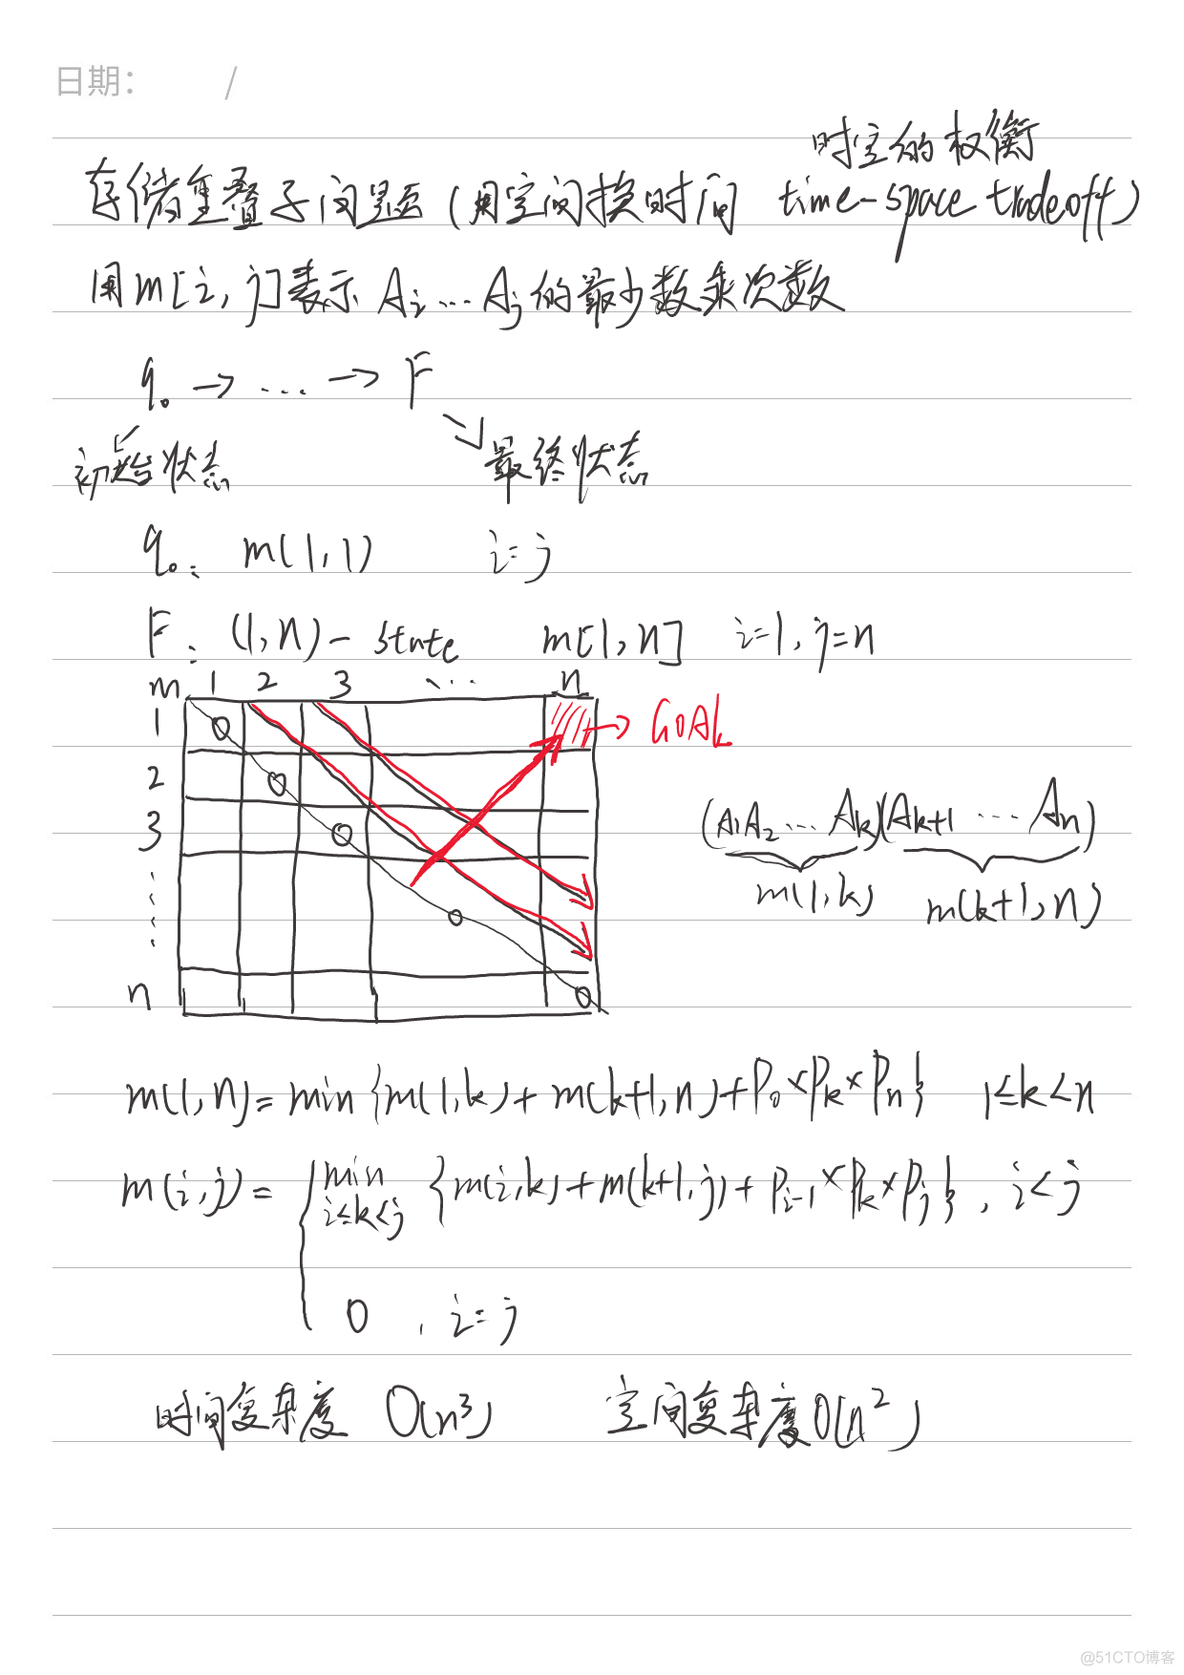 日期: /
时空的权衡
存储重叠子问题 (用空间换时间 time-space tradeoff)
用m[i, j]表示 Ai ... Aj 的最少数乘次数
q₀ → ... → F
初始状态 最终状态
q₀: m(1,1) i=j
F: (1,n)- state m[1,n] i=1, j=n
m 1 2 3 ... n
1 0 → GOAL
2 0
3 0
(A₁A₂ ... Ak)(Ak+1 ... An)
m(1,k) m(k+1,n)
⋮ 0
n 0
m(1,n) = min {m(1,k) + m(k+1,n) + P₀ × Pk × Pn} 1≤k<n
m(i,j) = { min i≤k<j {m(i,k) + m(k+1,j) + Pi-1 × Pk × Pj}, i<j
0 , i=j
时间复杂度 O(n³) 空间复杂度 O(n²)
@51CTO博客